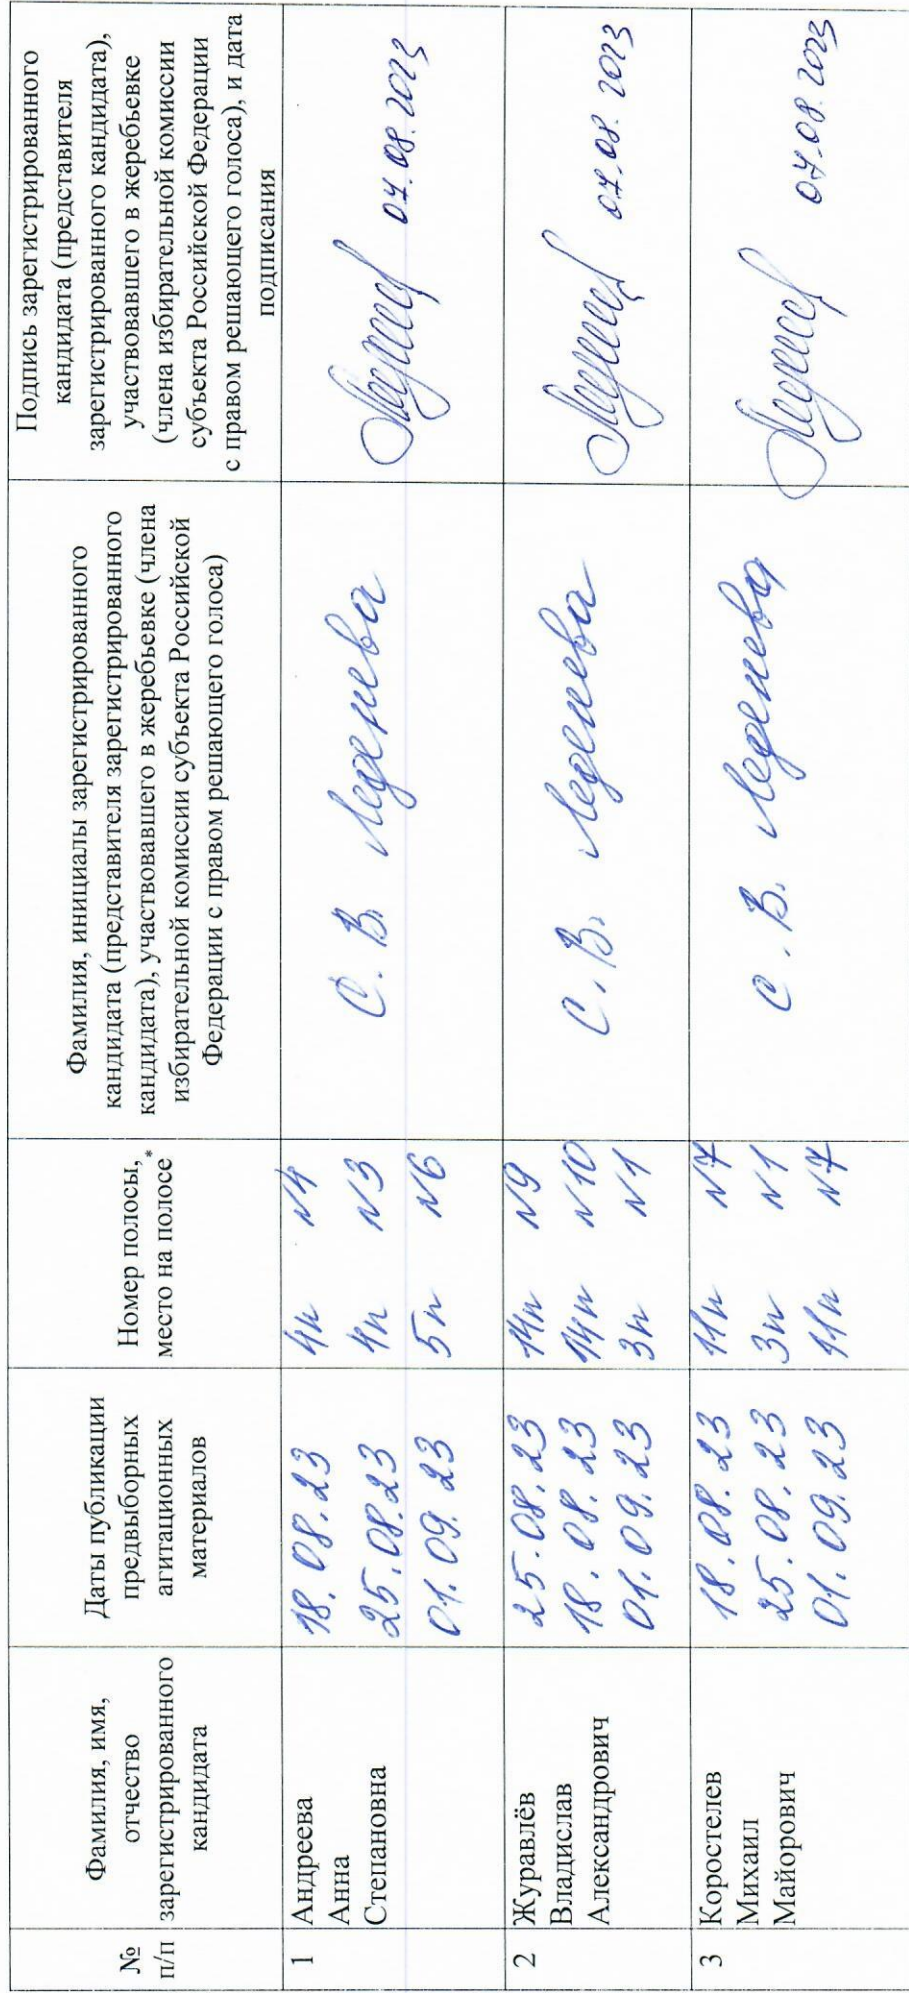 №
п/п
Фамилия, имя,
отчество
зарегистрированного
кандидата
Даты публикации
предвыборных
агитационных
материалов
Номер полосы,
место на полосе*
Фамилия, инициалы зарегистрированного
кандидата (представителя зарегистрированного
кандидата), участвовавшего в жеребьевке (члена
избирательной комиссии субъекта Российской
Федерации с правом решающего голоса)
Подпись зарегистрированного
кандидата (представителя
зарегистрированного кандидата),
участвовавшего в жеребьевке
(члена избирательной комиссии
субъекта Российской Федерации
с правом решающего голоса), и дата
подписания
1
Андреева
Анна
Степановна
18.08.23 4п №4
25.08.23 4п №3
01.09.23 5п №6
С. В. Леденева
07.08.2023
2
Журавлёв
Владислав
Александрович
25.08.23 14п №9
18.08.23 14п №10
01.09.23 3п №1
С. В. Леденева
07.08.2023
3
Коростелев
Михаил
Майорович
18.08.23 11п №7
25.08.23 3п №1
01.09.23 11п №7
С. В. Леденева
07.08.2023